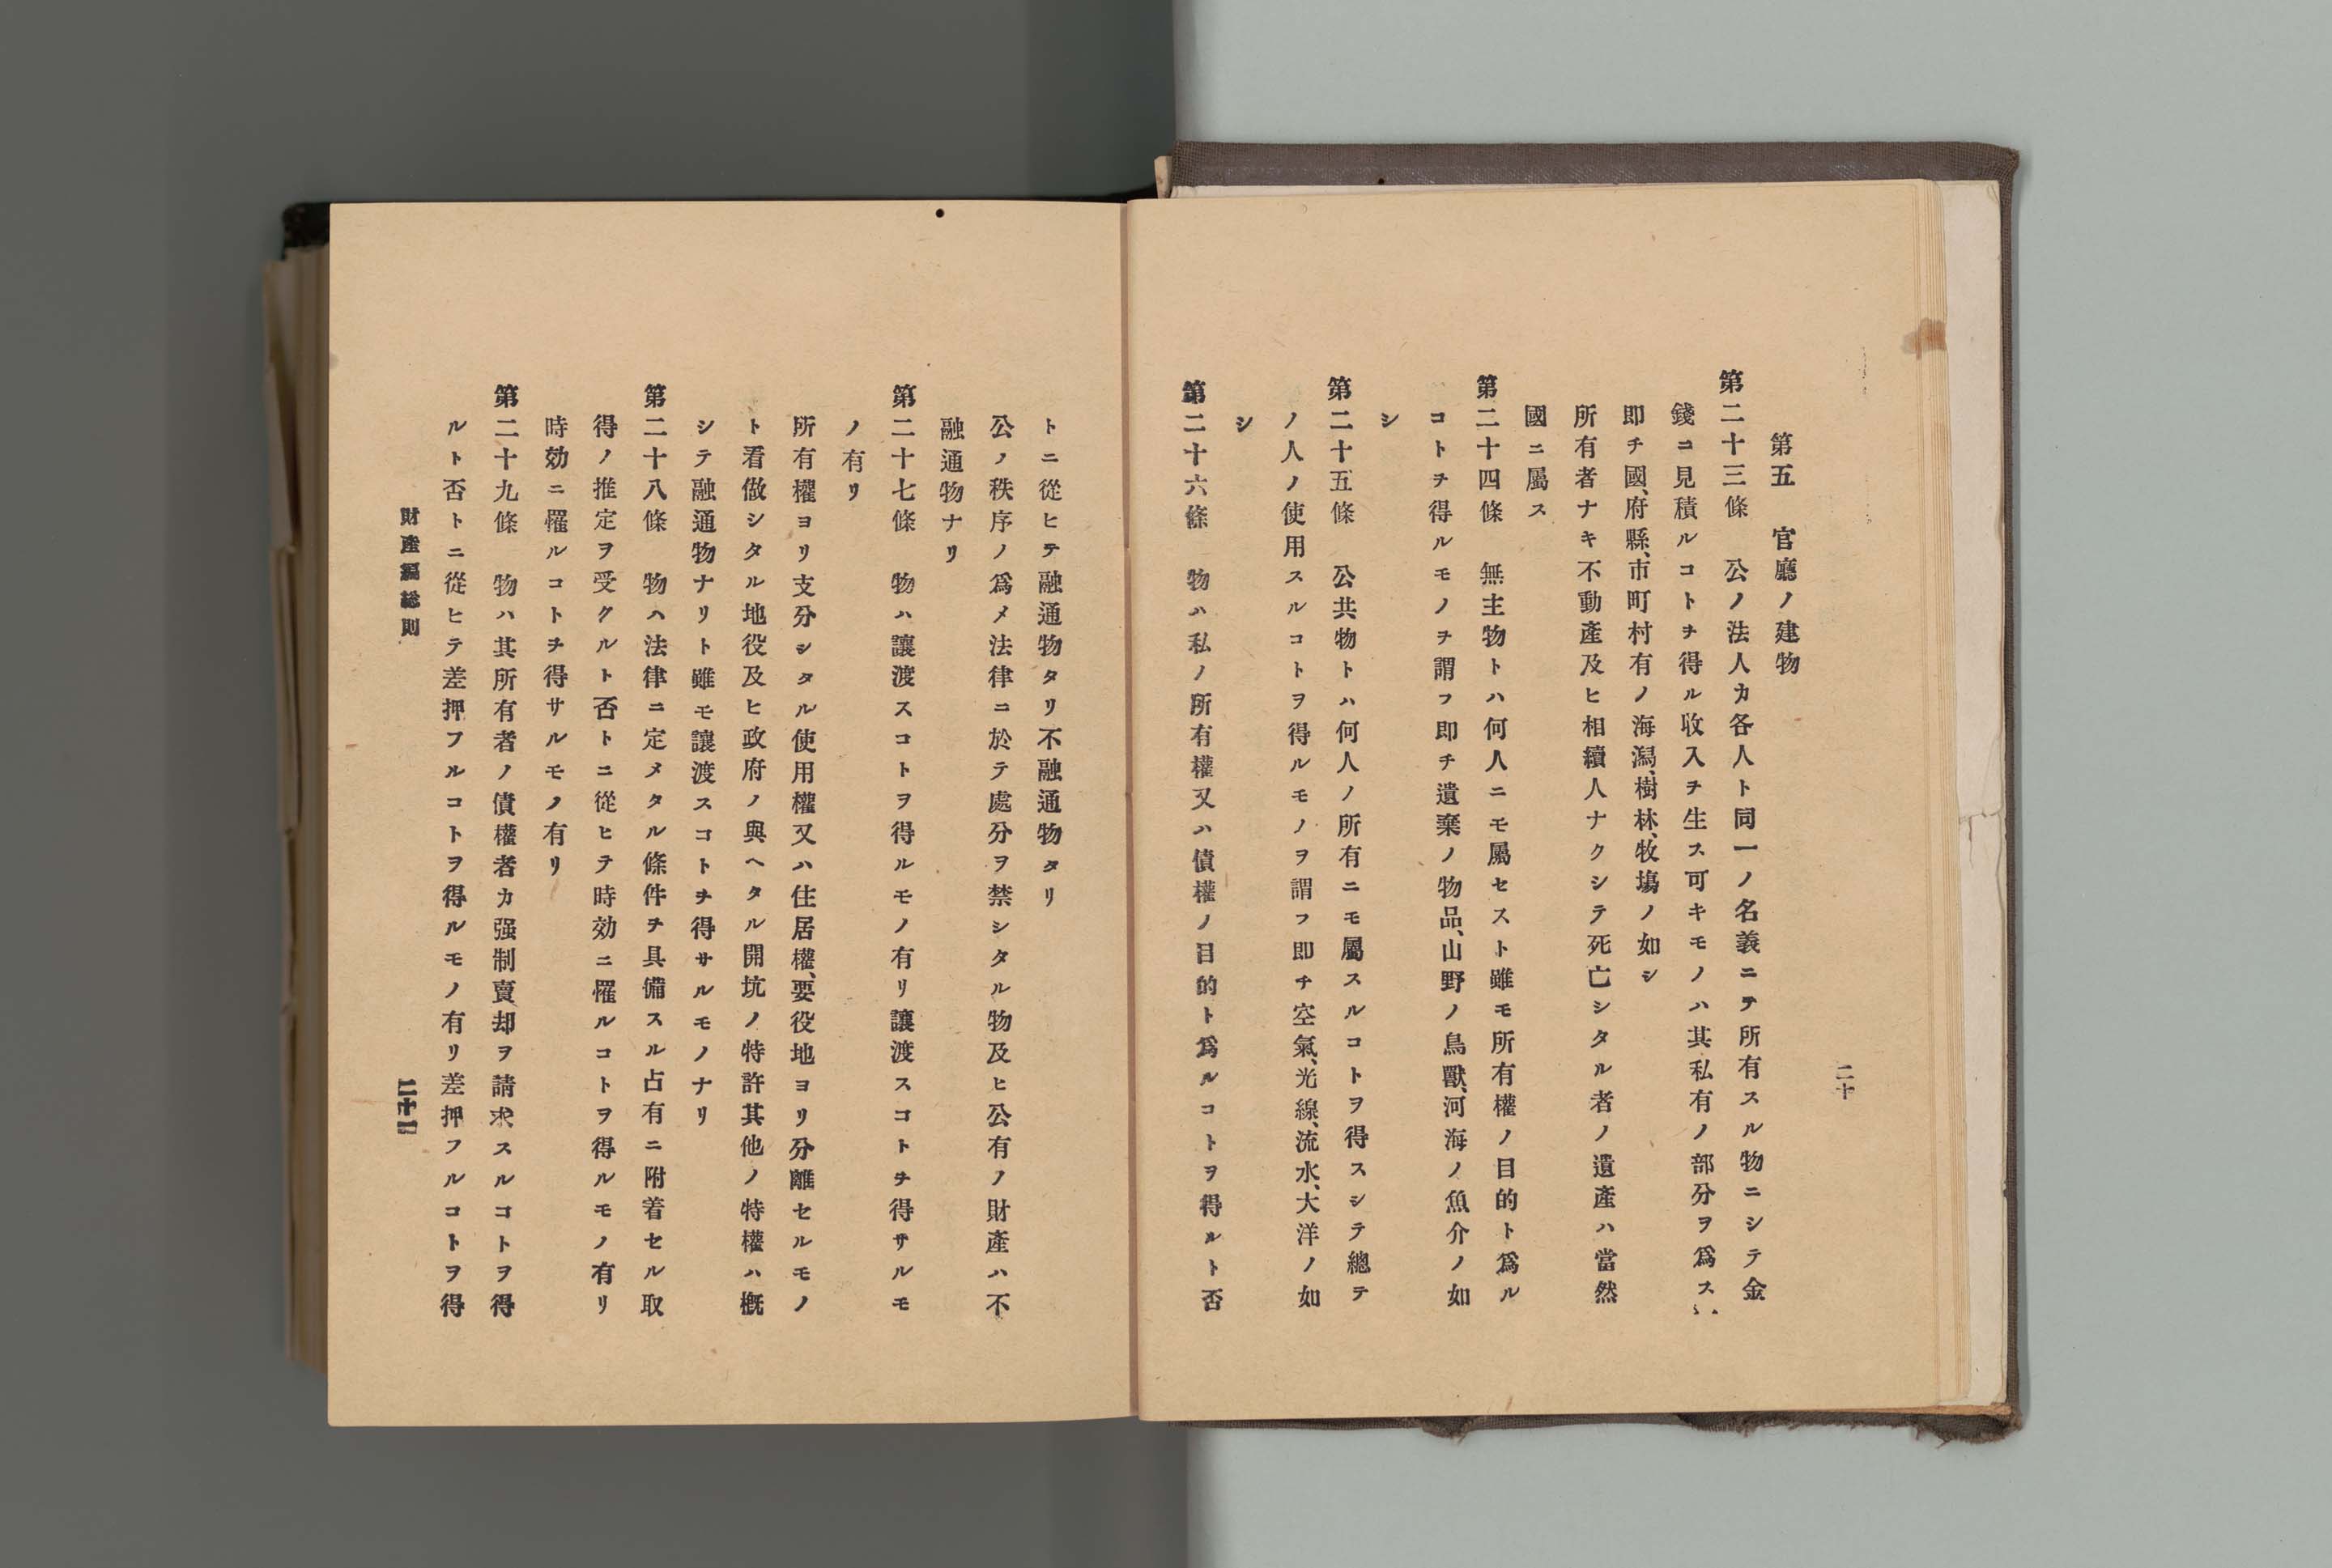 二十
第五　官廳ノ建物
第二十三條　公ノ法人カ各人ト同一ノ名義ニテ所有スル物ニシテ金
錢ニ見積ルコトヲ得ル收入ヲ生ス可キモノハ其私有ノ部分ヲ爲ス
即チ國、府縣、市町村有ノ海潟、樹林、牧塲ノ如シ
所有者ナキ不動產及ヒ相續人ナクシテ死亡シタル者ノ遺產ハ當然
國ニ屬ス
第二十四條　無主物トハ何人ニモ屬セスト雖モ所有權ノ目的ト爲ル
コトヲ得ルモノヲ謂フ即チ遺棄ノ物品、山野ノ鳥獸、河海ノ魚介ノ如
シ
第二十五條　公共物トハ何人ノ所有ニモ屬スルコトヲ得スシテ總テ
ノ人ノ使用スルコトヲ得ルモノヲ謂フ即チ空氣、光線、流水、大洋ノ如
シ
第二十六條　物ハ私ノ所有權又ハ債權ノ目的ト爲ルコトヲ得ルト否
トニ從ヒテ融通物タリ不融通物タリ
公ノ秩序ノ爲メ法律ニ於テ處分ヲ禁シタル物及ヒ公有ノ財產ハ不
融通物ナリ
第二十七條　物ハ讓渡スコトヲ得ルモノ有リ讓渡スコトヲ得サルモ
ノ有リ
所有權ヨリ支分シタル使用權又ハ住居權、要役地ヨリ分離セルモノ
ト看做シタル地役及ヒ政府ノ與ヘタル開坑ノ特許其他ノ特權ハ槪
シテ融通物ナリト雖モ讓渡スコトヲ得サルモノナリ
第二十八條　物ハ法律ニ定メタル條件ヲ具備スル占有ニ附着セル取
得ノ推定ヲ受クルト否トニ從ヒテ時効ニ罹ルコトヲ得ルモノ有リ
時効ニ罹ルコトヲ得サルモノ有リ
第二十九條　物ハ其所有者ノ債權者カ强制賣却ヲ請求スルコトヲ得
ルト否トニ從ヒテ差押フルコトヲ得ルモノ有リ差押フルコトヲ得
財產編総則
二十一